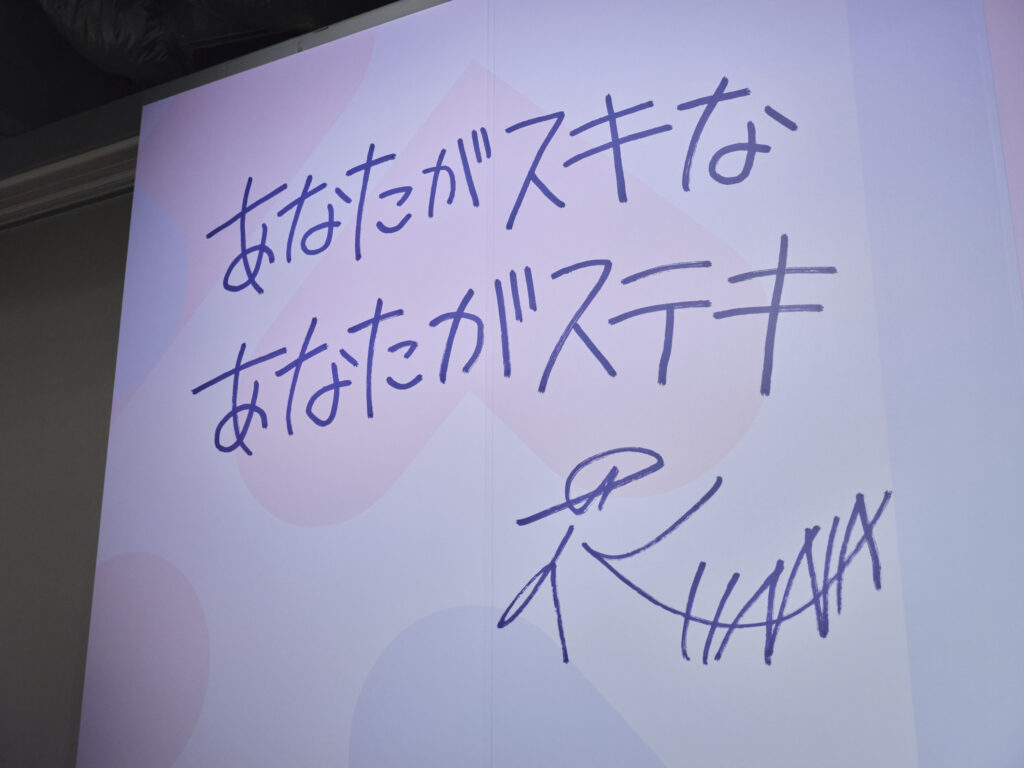 あなたがスキな
あなたがステキ
HANA